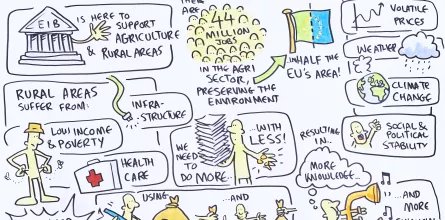 EIB
IS HERE TO
SUPPORT
AGRICULTURE
& RURAL AREAS
ARE
44
MILLION
JOBS
IN THE AGRI
SECTOR,
PRESERVING THE
ENVIRONMENT
HALF THE
EU'S AREA!
VOLATILE
PRICES
WEATHER
CLIMATE
CHANGE
SOCIAL &
POLITICAL
STABILITY
RURAL AREAS
SUFFER FROM:
INFRA-
STRUCTURE
LOW INCOME
& POVERTY
HEALTH
CARE
WE
NEED
TO
DO MORE...
...WITH
LESS!
RESULTING
IN...
MORE
KNOWLEDGE...
USING
...AND
...AND
MORE